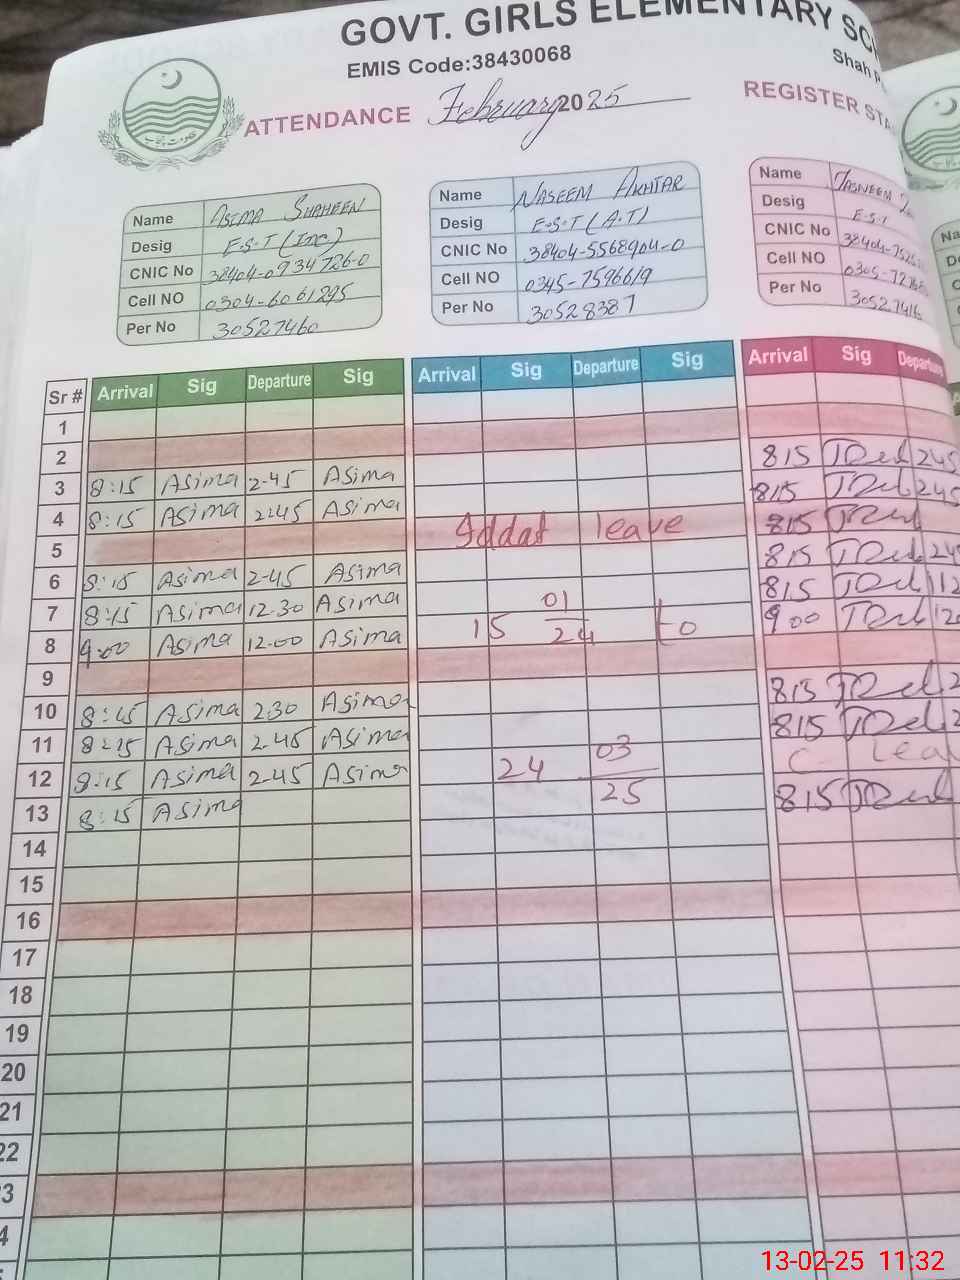 GOVT. GIRLS ELEMENTARY
EMIS Code:38430068
Shah
ATTENDANCE February 2025 REGISTER
Name ASIMA SHAHEEN
Desig E.S.T (Inc)
CNIC No 38404-0934726-0
Cell NO 0304-6061295
Per No 30527460
Name NASEEM AKHTAR
Desig E.S.T (A.T)
CNIC No 38404-5568904-0
Cell NO 0345-7596619
Per No 30528387
Name TASNEEM
Desig E.S.T
CNIC No
Cell NO
Per No
Sr # Arrival Sig Departure Sig Arrival Sig Departure Sig Arrival Sig Departure
1
2
3 8:15 Asima 2-45 Asima 815 245
4 8:15 Asima 2:45 Asima 815 245
Iddat leave 815
5 815
6 8:15 Asima 2-45 Asima 815
7 8:15 Asima 12.30 Asima 15 01/24 to 9 00
8 9:00 Asima 12-00 Asima
9
10 8:15 Asima 2:30 Asima 815
11 8:15 Asima 2-45 Asima 815
12 8:15 Asima 2-45 Asima 24 03/25 C-
13 8:15 Asima 815
14
15
16
17
18
19
20
21
22
3
4
13-02-25 11:32